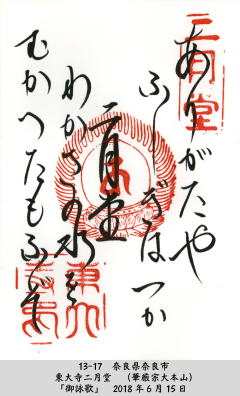 二月堂
ありがたや
ふしぎは一つか
二月堂
わかさの水を
むかへたもふぞ
13-17　奈良県奈良市
東大寺二月堂　（華厳宗大本山）
「御詠歌」　2018年6月15日